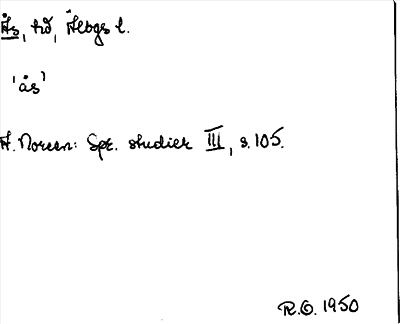 Ås, hd, Älvbgs l.
'ås'
A. Noreen: Spr. studier III, s. 105.
R.O. 1950